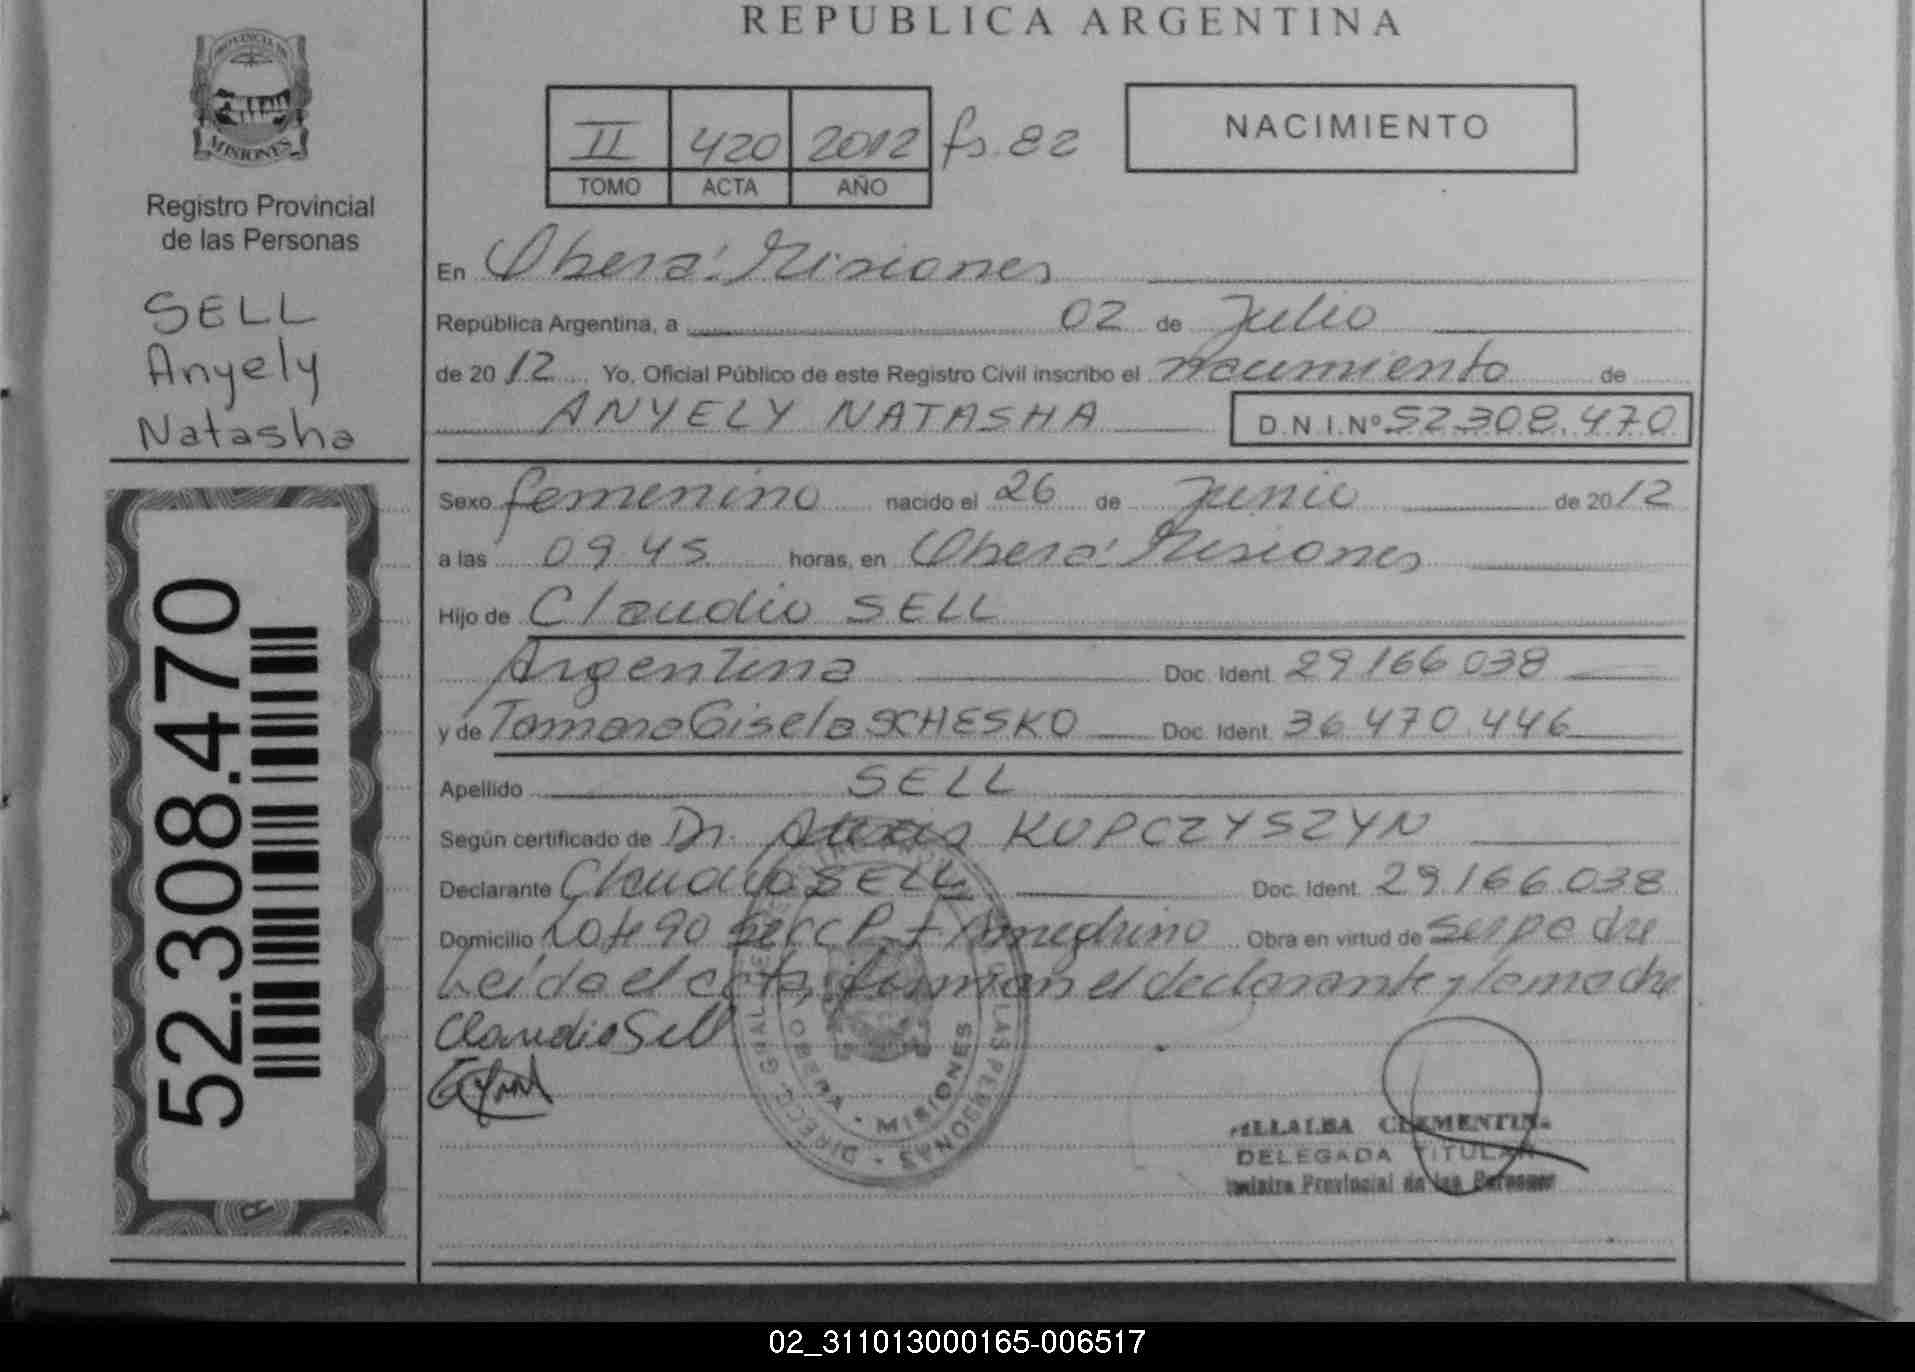 REPUBLICA ARGENTINA
PROVINCIA DE
MISIONES
Registro Provincial
de las Personas
SELL
Anyely
Natasha
52.308.470
II 420 2012 fs. 82
TOMO ACTA AÑO
NACIMIENTO
En Oberá: Misiones
República Argentina, a 02 de Julio
de 2012 Yo, Oficial Público de este Registro Civil inscribo el nacimiento de
ANYELY NATASHA D.N.I.Nº 52.308.470
Sexo femenino nacido el 26 de Junio de 2012
a las 09.45 horas, en Oberá: Misiones
Hijo de Claudio SELL
Argentina Doc. Ident. 29.166.038
y de Tamara Gisela SCHESKO Doc. Ident. 36.470.446
Apellido SELL
Según certificado de Dr. KUPCZYSZYN
Declarante Claudio SELL Doc. Ident. 29.166.038
Domicilio Lote 90 Secc P. F Ameghino Obra en virtud de ser padre
Leida el acta, firman el declarante y la madre
Claudio Sell
OBERA - MISIONES
VILLALBA CLEMENTINA
DELEGADA TITULAR
Provincial de las Personas
02_311013000165-006517